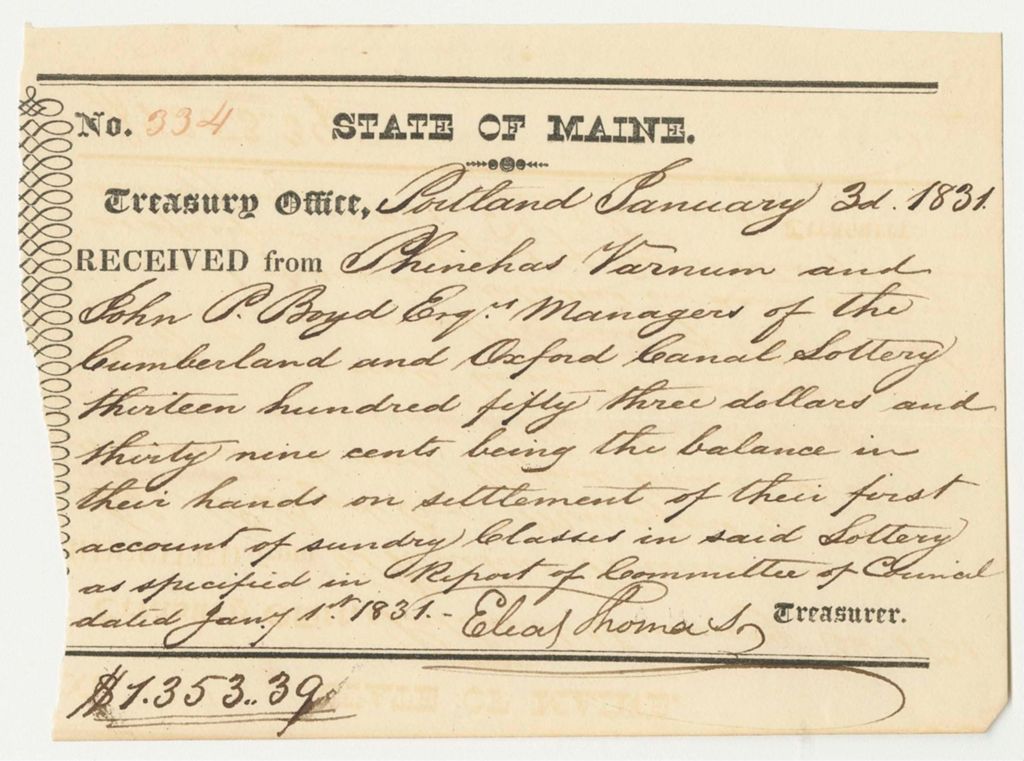 No. 334 STATE OF MAINE.
Treasury Office, Portland January 3d. 1831.
RECEIVED from Phinehas Varnum and
John P. Boyd Esqrs Managers of the
Cumberland and Oxford Canal Lottery
thirteen hundred fifty three dollars and
thirty nine cents being the balance in
their hands on settlement of their first
account of sundry Classes in said Lottery
as specified in Report of Committee of Council
dated Jany 1st 1831. - Elias Thomas Treasurer.
$1.353..39